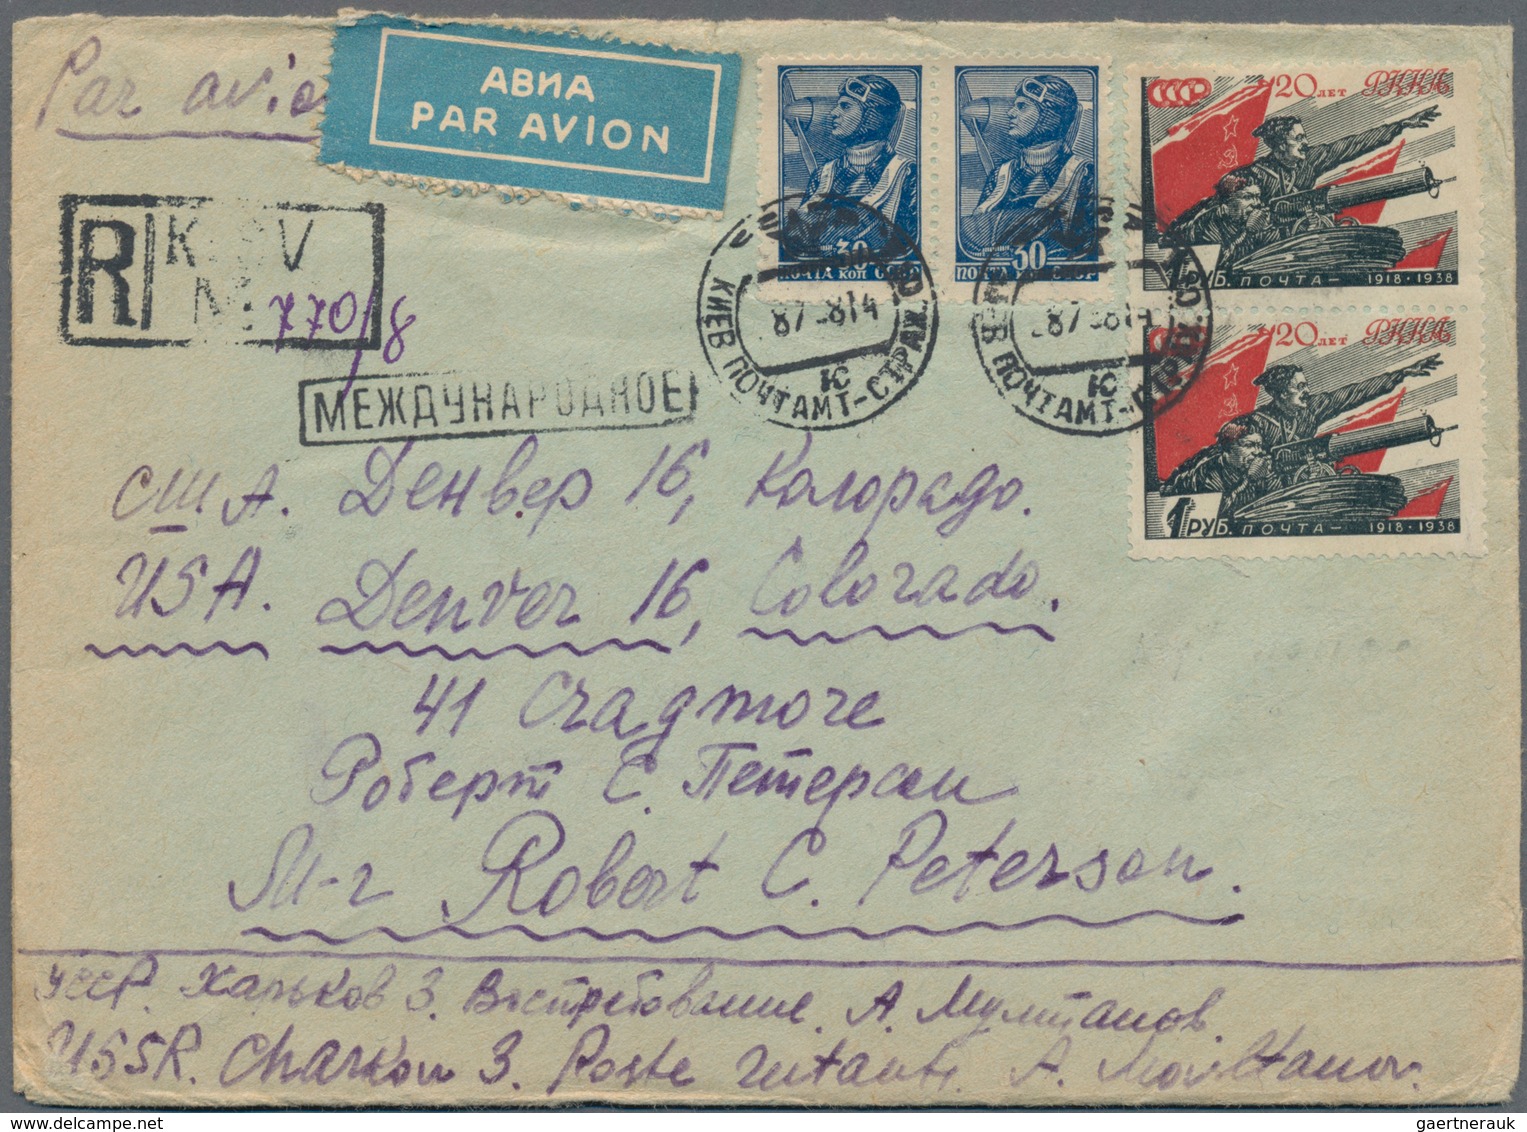 Par avio
АВИА
PAR AVION
R
№ 770/8
МЕЖДУНАРОДНОЕ
30
ПОЧТА КОП СССР
30
ПОЧТА КОП СССР
СССР 20 ЛЕТ РККА
1 РУБ. ПОЧТА — 1918 · 1938
СССР 20 ЛЕТ РККА
1 РУБ. ПОЧТА — 1918 · 1938
КИЕВ ПОЧТАМТ-СТРАХ.
Ю
КИЕВ ПОЧТАМТ-СТРАХ.
Ю
США. Денвер 16, Колорадо.
USA. Denver 16, Colorado.
41 Cragmore
Роберт С. Петерсен
M-r Robert C. Peterson.
УССР. Харьков 3. Востребование. А. Мултанов.
USSR. Charkow 3. Poste A.
gaertnerauk | delcampe.net